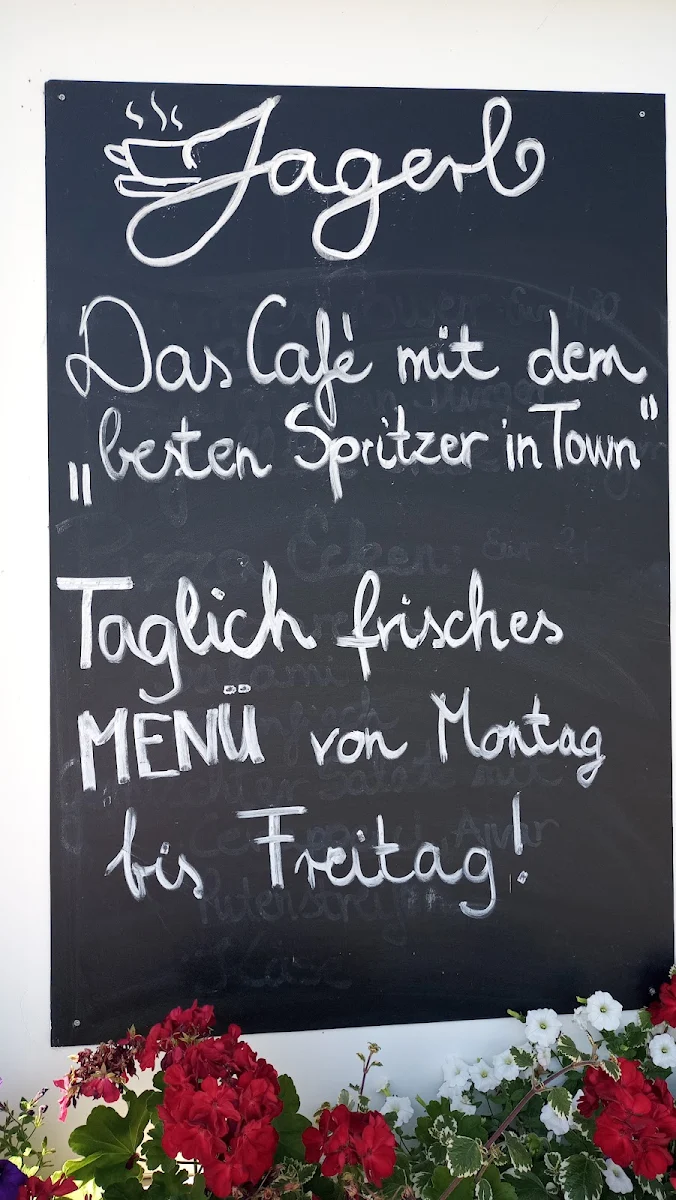 Jagerl
Das Café mit dem
„besten Spritzer in Town"
Taglich frisches
MENÜ von Montag
bis Freitag!